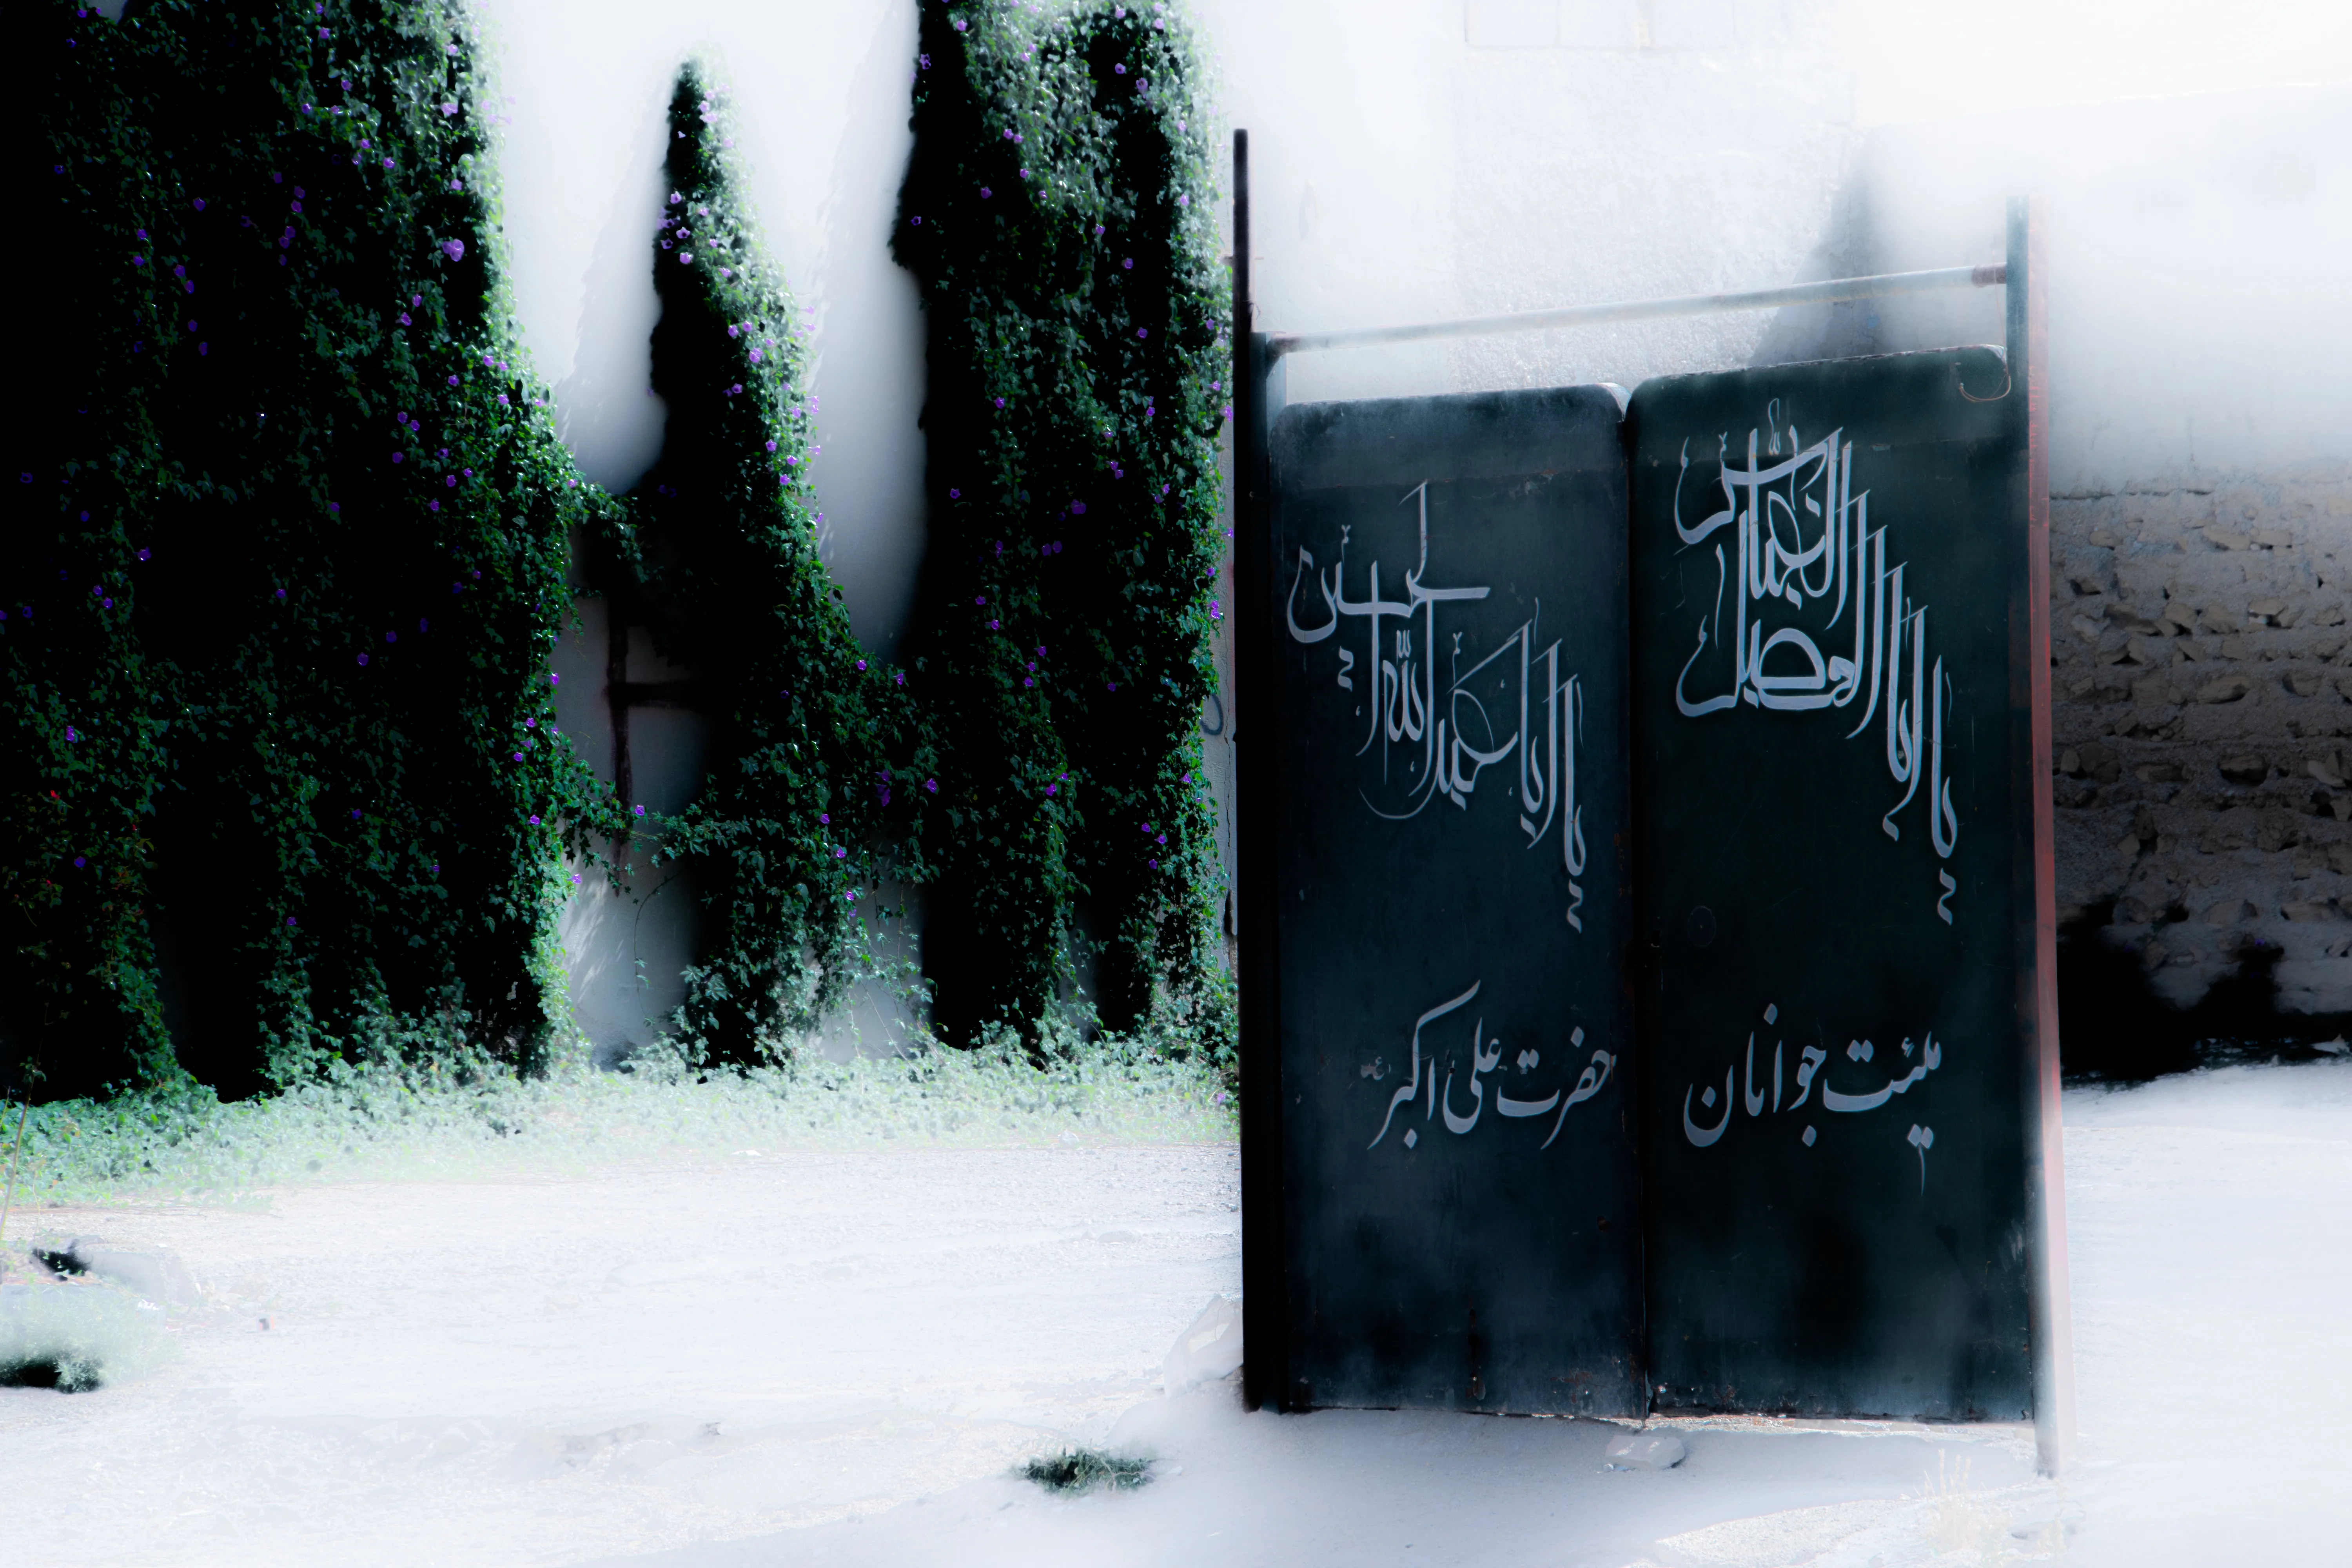 یا ابا الفضل العباس
یا ابا عبدالله الحسین
هیئت جوانان
حضرت علی اکبر